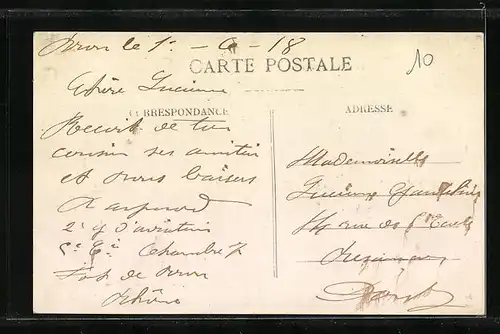 Bron le 1 - 6 - 18
10
CARTE POSTALE
Chère Lucienne
CORRESPONDANCE
ADRESSE
Reçoit de ton
cousin ses amitiés
et bons baisers
Raymond
2e d'aviation
Chambre 7
Fort de Bron
Rhône
Mademoiselle
Lucienne
rue des